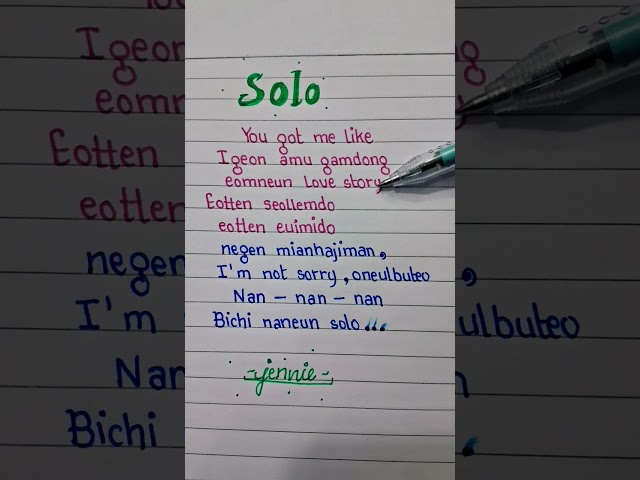 Solo
You got me like
Igeon amu gamdong
eomneun Love story
Eotten seollemdo
eotten euimido
negen mianhajiman,
I'm not sorry, oneulbuteo
Nan - nan - nan
Bichi naneun solo...
-jennie-